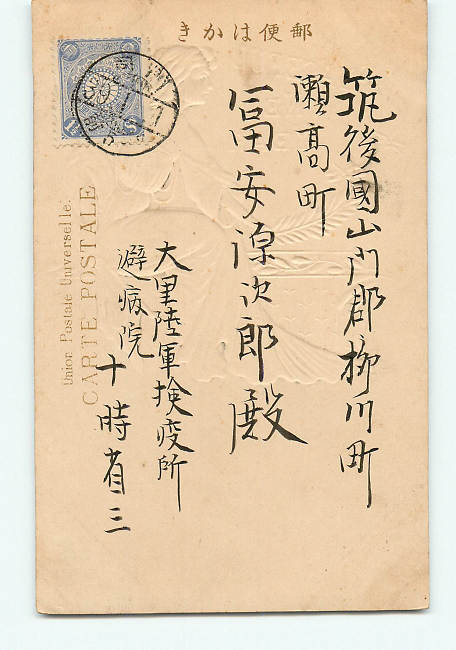 郵便はかき
筑後國山門郡柳川町
瀬高町
冨安源次郎殿
大里陸軍検疫所
避病院
十時省三
Union Postale Universelle.
CARTE POSTALE